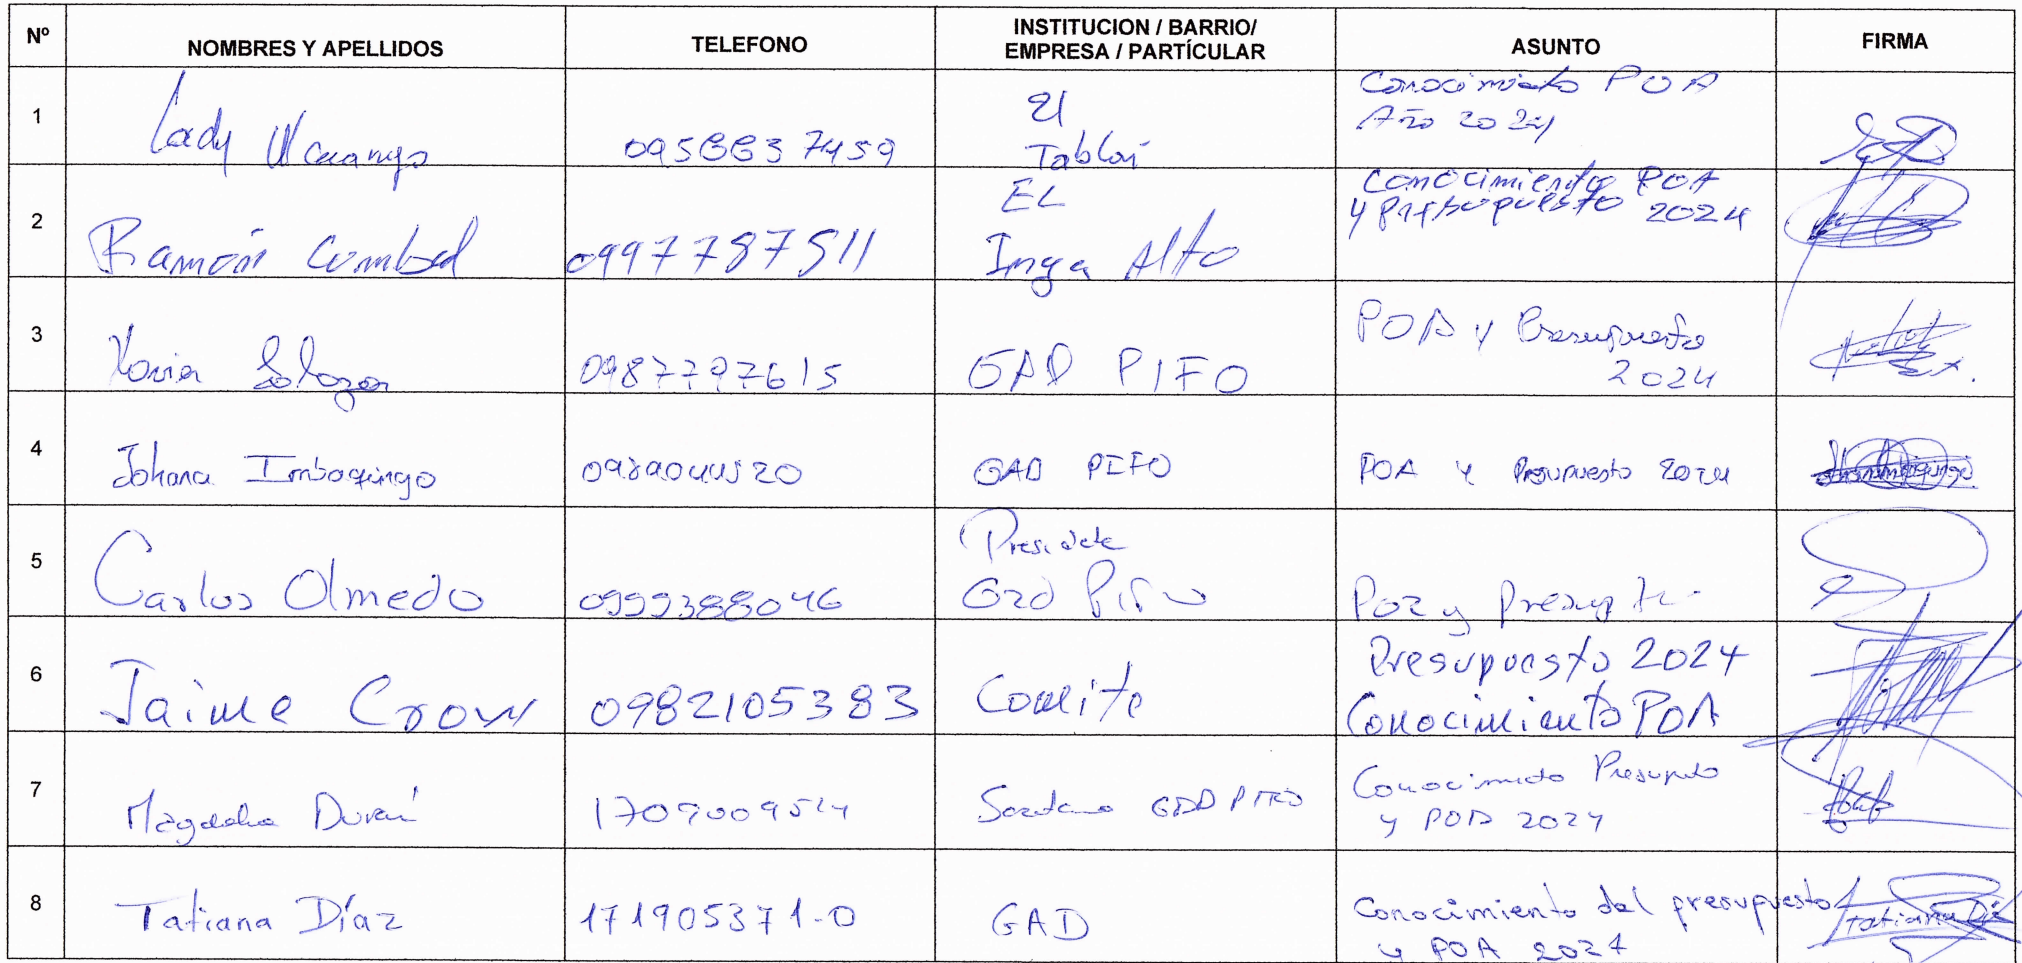 Nº NOMBRES Y APELLIDOS TELEFONO INSTITUCION / BARRIO/ EMPRESA / PARTÍCULAR ASUNTO FIRMA
1 Lady 0958637459 El Tablón Conocimiento POA Año 2024
2 Ramón Cumbal 0997787511 EL Inga Alto Conocimiento POA y presupuesto 2024
3 Xavier Salazar 0987797615 GAD PIFO POA y Presupuesto 2024
4 Johana Imbaquingo GAD PIFO POA y Presupuesto 2024
5 Carlos Olmedo 0999388046 Presidete Gad Pifo Poa y
6 Jaime 0982105383 Comite Presupuesto 2024 Conocimiento POA
7 Magdalena Durán 1709009524 GAD PIFO Conocimiento Presupuesto y POA 2024
8 Tatiana Díaz 171905371-0 GAD Conocimiento del presupuesto y POA 2024 Tatiana